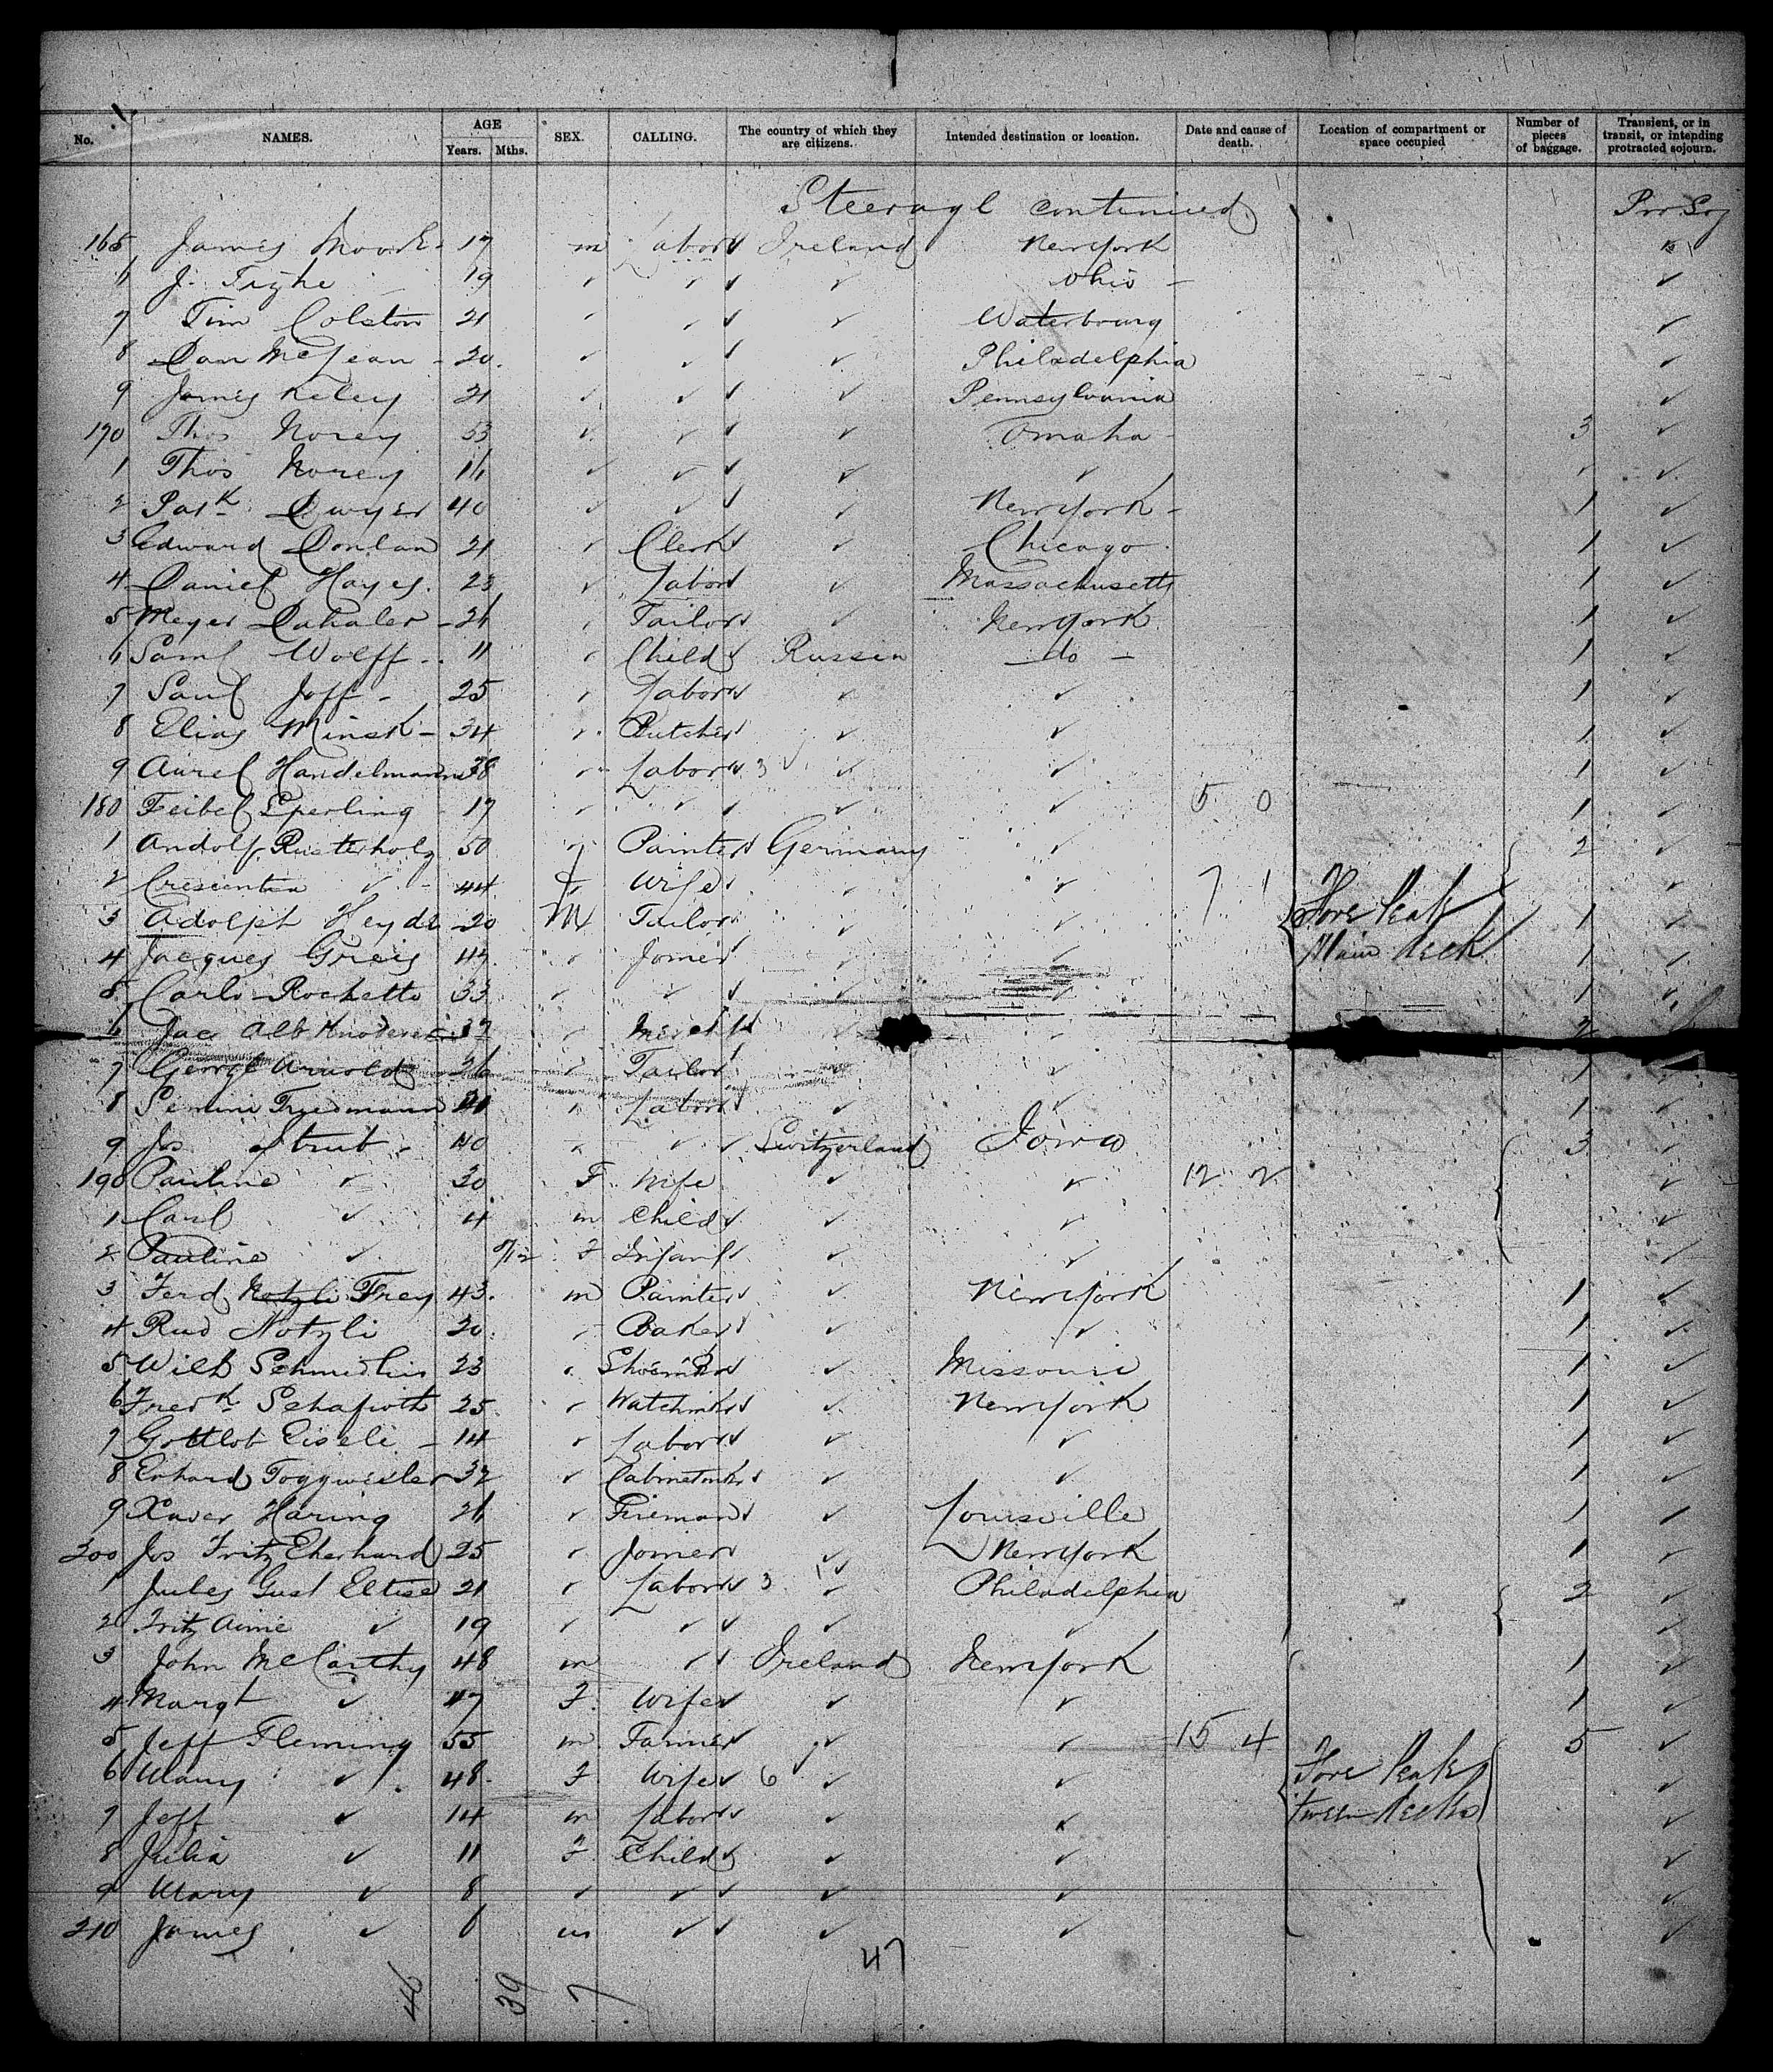 No. NAMES. AGE Years. Mths. SEX. CALLING. The country of which they are citizens. Intended destination or location. Date and cause of death. Location of compartment or space occupied Number of pieces of baggage. Transient, or in transit, or intending protracted sojourn.
Steerage continued Pro Soj
165 James Moore 17 m Labor Ireland New York "
6 J. Tighe 19 ✓ ✓ ✓ ✓ Ohio ✓
7 Tim Colston 21 ✓ ✓ ✓ ✓ Waterbourg ✓
8 Dan McJean 20 ✓ ✓ ✓ ✓ Philadelphia ✓
9 James Kiley 21 ✓ ✓ ✓ ✓ Pennsylvania ✓
170 Thos Norey 53 ✓ ✓ ✓ ✓ Omaha 3 ✓
1 Thos Norey 16 ✓ ✓ ✓ ✓ ✓ ✓ ✓
2 Patk Dwyer 40 ✓ ✓ ✓ ✓ New York 1 ✓
3 Edward Donlan 21 ✓ Clerk ✓ Chicago 1 ✓
4 Daniel Hayes 23 ✓ Labor ✓ Massachusetts 1 ✓
5 Meyer Dahaler 26 ✓ Tailor ✓ New York 1 ✓
6 Saml Wolff 11 ✓ Child Russia do 1 ✓
7 Saul Joff 25 ✓ Labor ✓ ✓ 1 ✓
8 Elias Minsk 24 ✓ Butcher ✓ ✓ 1 ✓
9 Aurel Handelmann 38 ✓ Labor 3 ✓ ✓ 1 ✓
180 Feibel Sperling 17 ✓ ✓ ✓ ✓ ✓ 5 0 1 ✓
1 Andolf Rusterholz 50 ✓ Painter Germany ✓ 2 ✓
2 Crescentia ✓ 44 f Wife ✓ ✓ 7 1 ✓
3 Adolph Heyde 20 M Tailor ✓ ✓ Fore Peak 1 ✓
4 Jacques Greis 47 ✓ Joiner ✓ ✓ Main deck 1 ✓
5 Carlo Rochette 33 ✓ ✓ ✓ ✓ ✓ 1 ✓
6 Jac Alb 37 ✓ Mercht ✓ ✓ 2
7 George Arnold 26 ✓ Tailor ✓ 1 ✓
8 Friedmann ✓ Labor ✓ ✓ 1 ✓
9 Jos Strub 40 ✓ ✓ ✓ Switzerland Iowa 3 ✓
190 Pauline ✓ 30 F Wife ✓ ✓ 12 2 ✓
1 Carl ✓ 4 m Child ✓ ✓ ✓
2 Pauline ✓ /12 F Infant ✓ ✓ ✓
3 Ferd Notzli Frey 43 m Painter ✓ New York 1 ✓
4 Rud Notzli 20 ✓ Baker ✓ ✓ 1 ✓
5 Wilh Schmidlin 23 ✓ Shoemkr ✓ Missouri 1 ✓
6 Fredk Schafroth 25 ✓ Watchmkr ✓ New York 1 ✓
7 Gottlob Eiseli 14 ✓ Labor ✓ ✓ 1 ✓
8 Erhard Toggwiler 37 ✓ Cabinetmkr ✓ ✓ 1 ✓
9 Xaver Haring 26 ✓ Fireman ✓ Louisville 1 ✓
200 Jos Fritz Eherhard 25 ✓ Joiner ✓ New York 1 ✓
1 Jules Gust Eltise 21 ✓ Labor 3 ✓ Philadelphia 2 ✓
2 Fritz Aime ✓ 19 ✓ ✓ ✓ ✓ ✓ ✓
3 John McCarthy 48 m ✓ ✓ Ireland New York 1 ✓
4 Margt ✓ 47 F Wife ✓ ✓ 1 ✓
5 Jeff Fleming 55 m Farmer ✓ ✓ 15 4 5 ✓
6 Mary ✓ 48 F Wife 6 ✓ ✓ Fore Peak ✓
7 Jeff ✓ 14 m Labor ✓ ✓ tween decks ✓
8 Julia ✓ 11 F Child ✓ ✓ ✓
9 Mary ✓ 8 ✓ ✓ ✓ ✓ ✓ ✓
210 James ✓ 6 m ✓ ✓ ✓ ✓ ✓
47
46 39 7